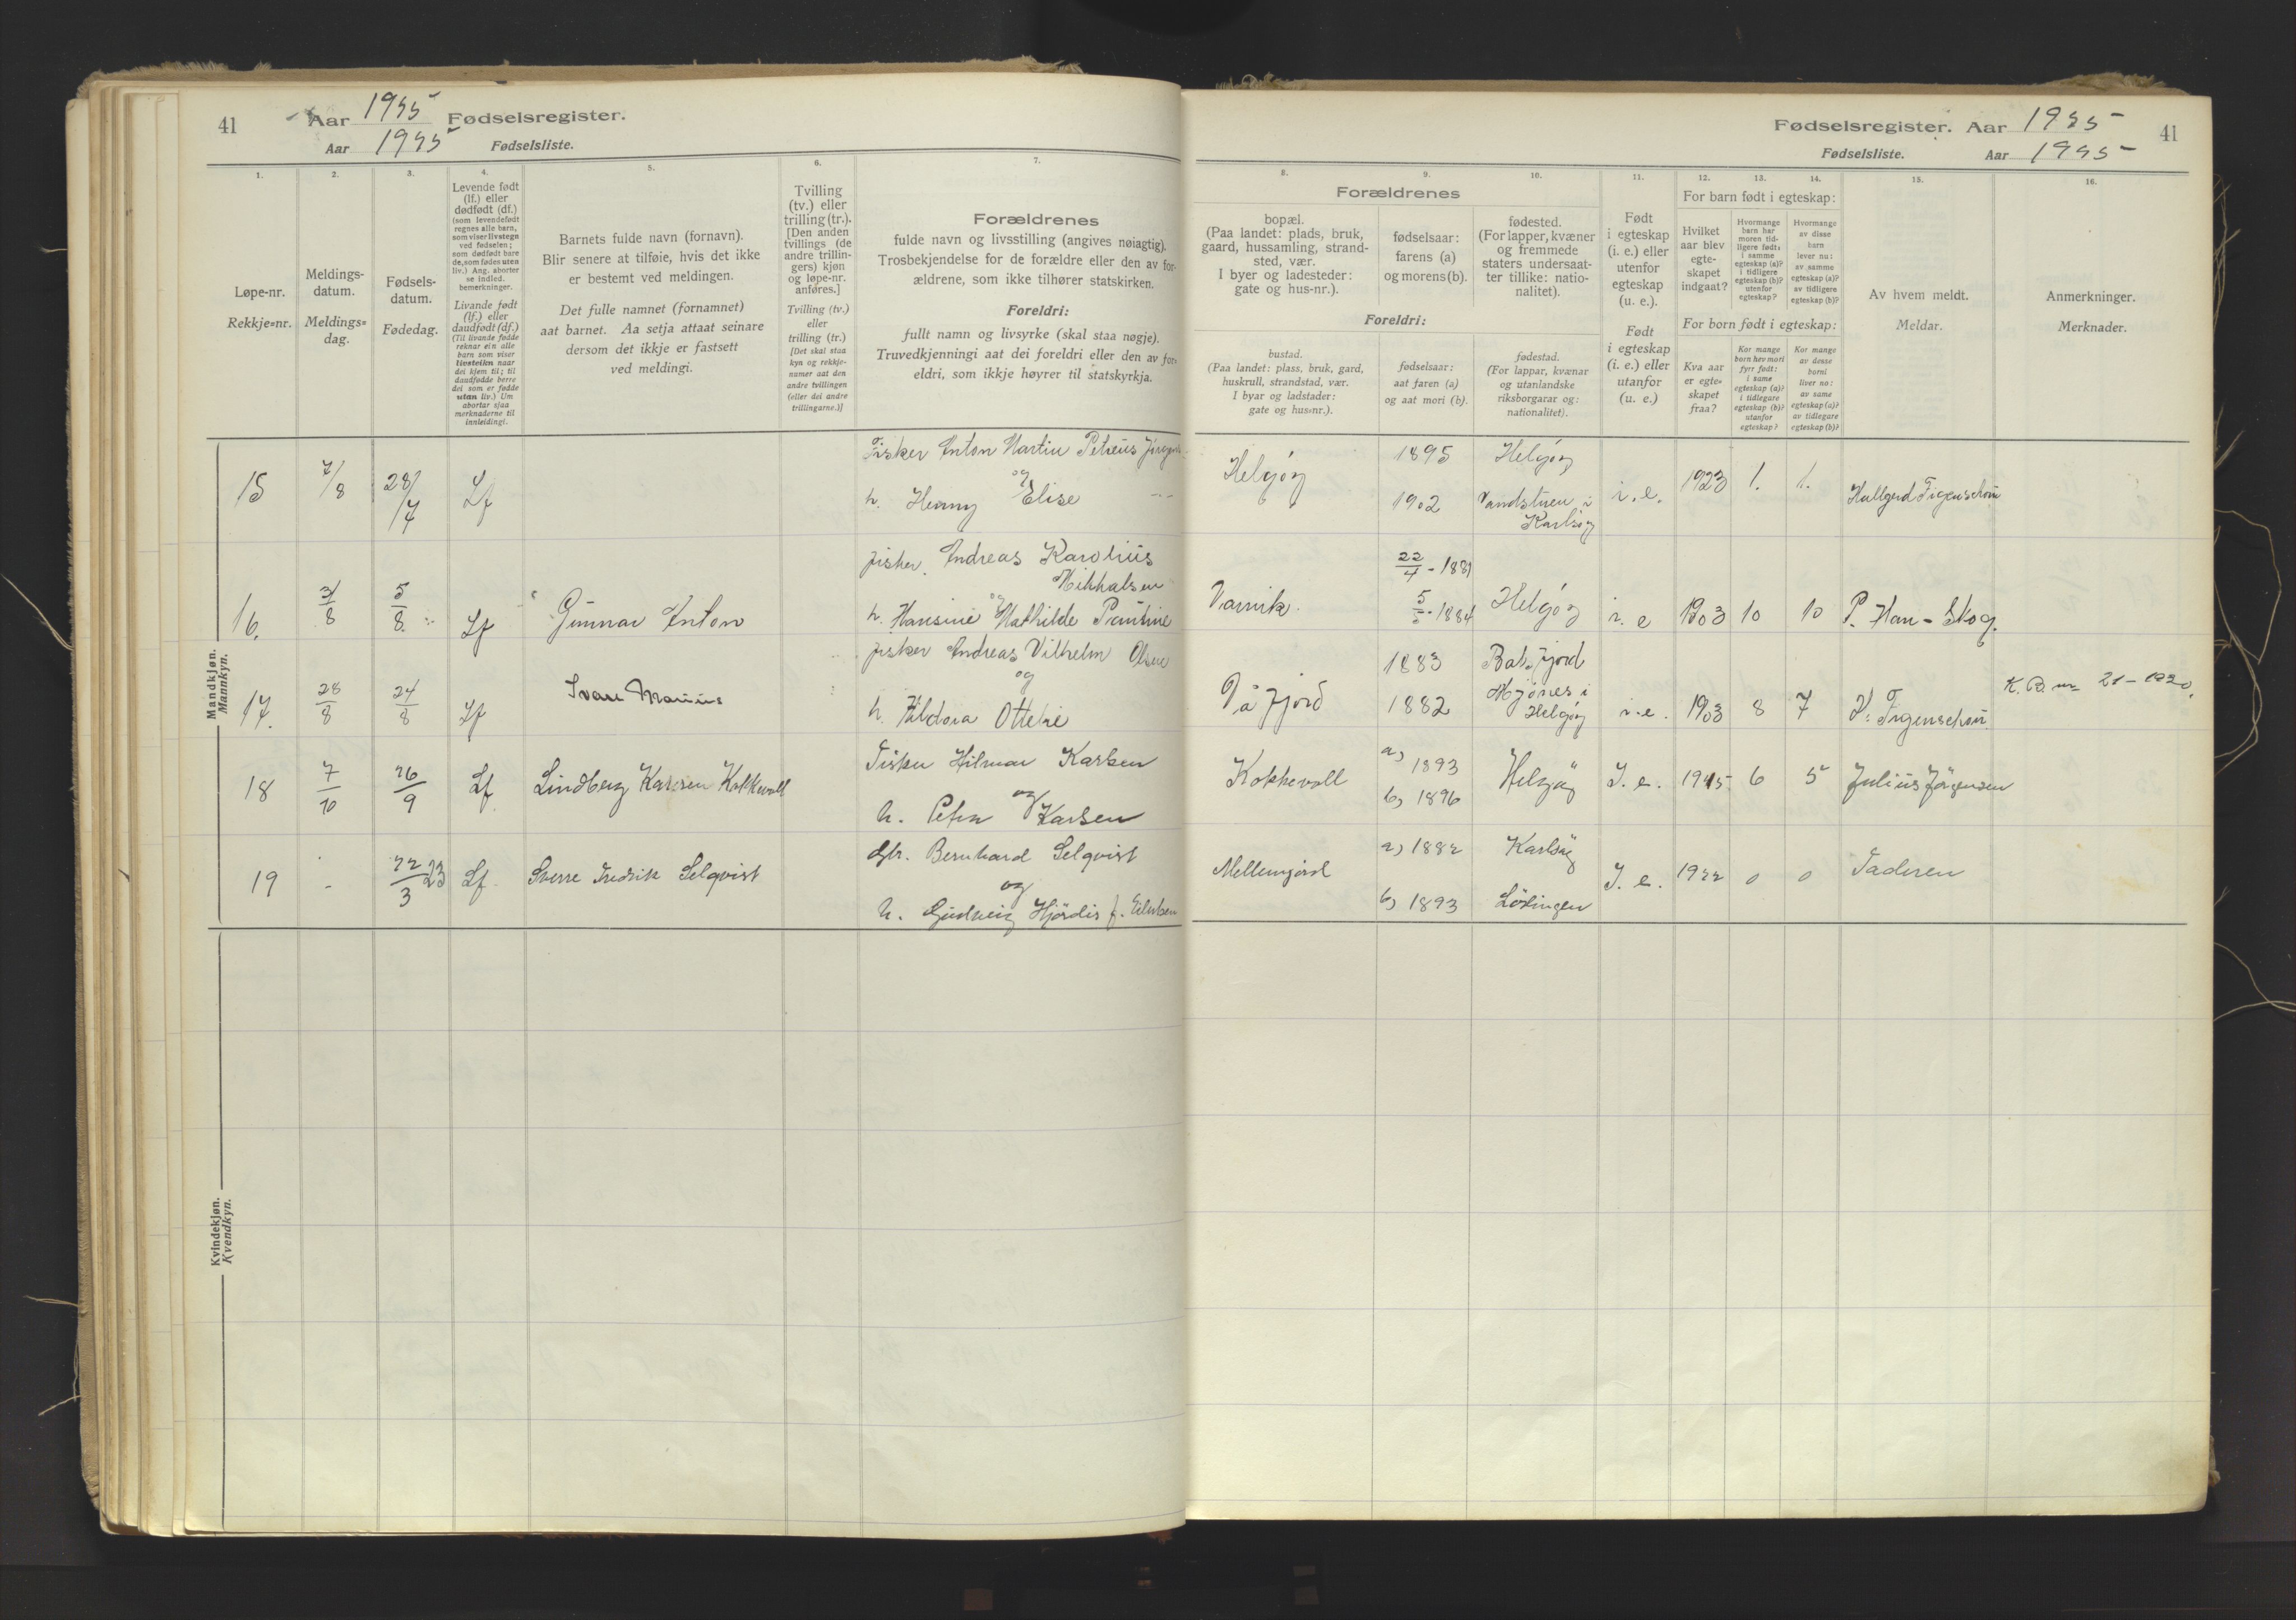 41
Aar 1925 Fødselsregister.
Aar 1925 Fødselsliste.
Fødselsregister. Aar 1925
41
Fødselsliste. Aar 1925
1.
Løpe-nr.
Rekkje=nr.
2.
Meldings-
datum.
Meldings=
dag.
3.
Fødsels-
datum.
Fødedag.
4.
Levende født
(lf.) eller
dødfødt (df.)
(som levendefødt
regnes alle barn,
som viser livstegn
ved fødselen;
som dødfødt bare
de, som fødes uten
liv.) Ang. aborter
se indled.
bemerkninger.
Livande født
(lf.) eller
daudfødt (df.)
(Til livande fødde
reknar ein alle
barn som viser
livsteikn naar
dei kjem til; til
daudfødde berre
dei som er fødde
utan liv.) Um
abortar sjaa
merknaderne til
innleidingi.
5.
Barnets fulde navn (fornavn).
Blir senere at tilføie, hvis det ikke
er bestemt ved meldingen.
Det fulle namnet (fornamnet)
aat barnet. Aa setja attaat seinare
dersom det ikkje er fastsett
ved meldingi.
6.
Tvilling
(tv.) eller
trilling (tr.).
[Den anden
tvillings (de
andre trillin-
gers) kjøn
og løpe-nr.
anføres.]
Tvilling (tv.)
eller
trilling (tr.)
[Det skal staa
kyn og rekkje-
numer aat den
andre tvillingen
(eller dei andre
trillingarne.)]
7.
Forældrenes
fulde navn og livsstilling (angives nøiagtig).
Trosbekjendelse for de forældre eller den av for-
ældrene, som ikke tilhører statskirken.
Foreldri:
fullt namn og livsyrke (skal staa nøgje).
Truvedkjenningi aat dei foreldri eller den av for-
eldri, som ikkje høyrer til statskyrkja.
8.
9.
10.
Forældrenes
bopæl.
(Paa landet: plads, bruk,
gaard, hussamling, strand-
sted, vær.
I byer og ladesteder:
gate og hus-nr.).
fødselsaar:
farens (a)
og morens (b).
fødested.
(For lapper, kvæner
og fremmede
staters undersaat-
ter tillike: natio-
nalitet).
Foreldri:
bustad.
(Paa landet: plass, bruk, gard,
huskrull, strandstad, vær.
I byar og ladstader:
gate og hus=nr.).
fødselsaar:
aat faren (a)
og aat mori (b).
fødestad.
(For lappar, kvænar
og utanlandske
riksborgarar og:
nationalitet).
11.
Født
i egteskap
(i. e.) eller
utenfor
egteskap
(u. e.).
Født
i egteskap
(i. e.) eller
utanfor
(u. e.)
12.
13.
14.
For barn født i egteskap:
Hvilket
aar blev
egte-
skapet
indgaat?
Hvormange
barn har
moren tid-
ligere født:
i samme
egteskap (a)?
i tidligere
egteskap (b)?
utenfor
egteskap?
Hvormange
av disse
barn
lever nu:
av samme
egteskap (a)?
av tidligere
egteskap (b)?
For born født i egteskap:
Kva aar
er egte=
skapet
fraa?
Kor mange
born hev mori
fyrr født:
i same
egteskap (a)?
i tidlegare
egteskap (b)?
utanfor
egteskap?
Kor mange
av desse
borni
liver no:
av same
egteskap (a)?
av tidlegare
egteskap (b)?
15.
Av hvem meldt.
Meldar.
16.
Anmerkninger.
Merknader.
Mandkjøn.
Mannkyn.
15 7/8 28/7 Lf
Fisker Anton Martin Petreus
og
h. Henny Elise
Helgøy
1895
1902
Helgøy
i
Karlsøy
i. e. 1923 1. 1. Hallgerd Figenschou
16. 3/8 5/8. Lf Gunnar Anton
fisker Andreas Karolius
Mikkalsen
og
h. Hansine Mathilde Pauline
Vannik.
22/4 - 1881
5/5 - 1884
Helgøy i. e 1903 10 10 P. Han - Skog.
17. 28/8 24/8 Lf Ivar Marius
fisker Andreas Vilhelm Olsen
og
h. Hildora Ottelie
Våfjord
1883
1882
Balsfjord
Mjønes i
Helgøy
i. e. 1903 8 7 H. Figenschou K. B. nr 21 - 1920.
18 7/10 26/9 Lf Lindberg Karlsen Kokkevoll
Fisker Hilmar Karlsen
og
h. Petra Karlsen
Kokkevoll
a) 1893
b) 1896
Helgøy I. e. 1915 6 5 Julius Jørgensen
19 - 22/3 23 Lf Sverre Fredrik Selqvist
Gbr. Bernhard Selqvist
og
h. Gudveig Hjördis f. Eilertsen
Mellemjord
a) 1882
b) 1893
Karlsøy
Lödingen
I. e. 1922 0 0 Faderen
Kvindekjøn.
Kvendkyn.